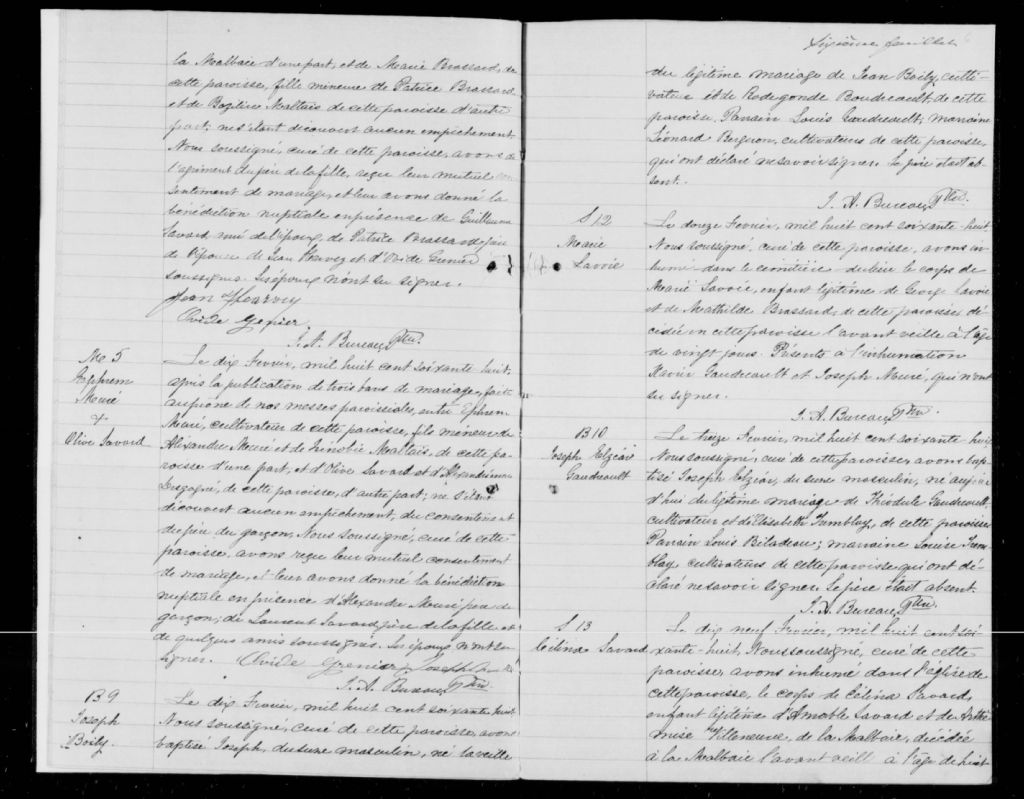 la Malbaie d'une part, et de Marie Brassard, de
cette paroisse, fille mineure de Patrice Brassard
et de Bazilice Maltais de cette paroisse d'autre
part; ne s'étant découvert aucun empêchement
Nous soussigné, curé de cette paroisse, avons de
l'agrément du père de la fille, reçu leur mutuel con
sentement de mariage, et leur avons donné la
bénédiction nuptiale en présence de Guillaume
Savard, ami de l'époux, de Patrice Brassard père
de l'épouse de Jean Hervey et d'Ovide Grenier
soussignés. Les époux n'ont su signer.
Jean Hearvey
Ovide Grenier
J. A. Bureau, Ptre.
M 5
Ephrem
Meuré
&
Olive Savard
Le dix Février, mil huit cent soixante huit,
après la publication de trois bans de mariage, faite
au prone de nos messes paroissiales, entre Ephrem
Meuré, cultivateur de cette paroisse, fils mineur de
Alexandre Meuré et de Zénobie Maltais, de cette pa-
roisse d'une part, et d'Olive Savard et d'Alexandrine
Gagné, de cette paroisse, d'autre part; ne s'étant
découvert aucun empêchement, du consentement
du père du garçon, Nous soussigné, curé de cette
paroisse, avons reçu leur mutuel consentement
de mariage, et leur avons donné la bénédiction
nuptiale en présence d'Alexandre Meuré père du
garçon, de Laurent Savard père de la fille et
de quelques amis soussignés. Les époux n'ont su
signer. Ovide Grenier, Joseph
J. A. Bureau, Ptre.
B 9
Joseph
Boily.
Le dix Fevrier, mil huit cent soixante huit
Nous soussigné, curé de cette paroisse avons
baptisé Joseph, du sexe masculin, né la veille
Sixième feuillet 6
du légitime mariage de Jean Boily, culti-
vateur et de Rodegonde Boudreault, de cette
paroisse. Parrain Louis Gaudreault; marraine
Léonard Bergeron, cultivateurs de cette paroisse,
qui ont déclaré ne savoir signer. Le père était ab-
sent.
J. A. Bureau, Ptre.
S 12
Marie
Savoie
Le douze Fevrier, mil huit cent soixante huit
Nous soussigné, curé de cette paroisse, avons in
humé dans le cimitière du lieu le corps de
Marie Savoie, enfant légitime de George Savoie
et de Mathilde Brassard, de cette paroisse dé-
cédée en cette paroisse l'avant veille à l'âge
de vingt jours. Présents à l'inhumation
Xavier Gaudreault et Joseph Meuré, qui n'ont
su signer.
J. A. Bureau, Ptre
B 10
Joseph Elzéar
Gaudreault
Le treize Fevrier, mil huit cent soixante huit
Nous soussigné, curé de cette paroisse, avons bap-
tisé Joseph Elzéar, du sexe masculin, né aujour
d'hui du légitime mariage de Théodule Gaudreault,
cultivateur et d'Elisabeth Tremblay, de cette paroisse
Parrain Louis Biladeau; marraine Louise Trem
blay, cultivateurs de cette paroisse qui ont dé-
claré ne savoir signer. Le père était absent.
J. A. Bureau, Ptre.
S 13
Célina Savard
Le dix neuf Fevrier, mil huit cent soi-
xante huit, Nous soussigné, curé de cette
paroisse, avons inhumé dans l'église de
cette paroisse, le corps de Célina Savard,
enfant légitime d'Amable Savard et de Arthé
mise Villeneuve, de la Malbaie, décédée
à la Malbaie l'avant veille à l'âge de huit